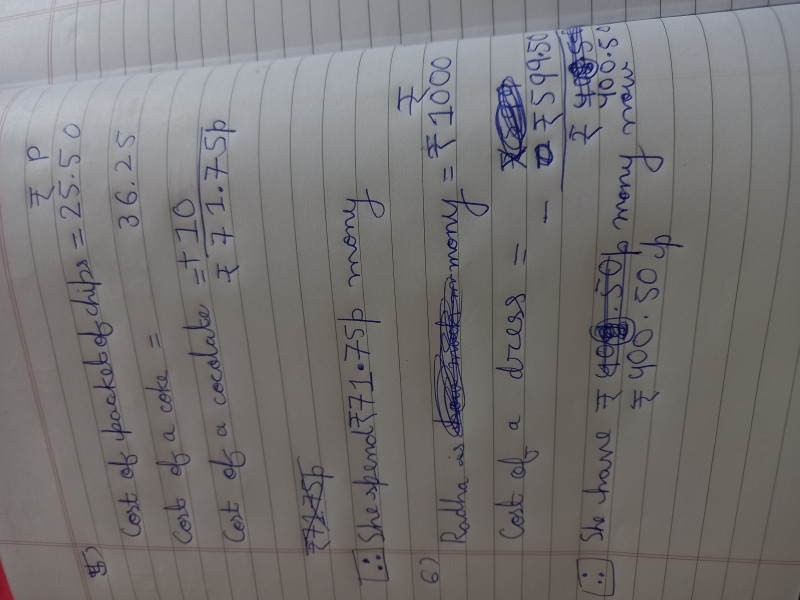 ₹ P
5) Cost of packet of chips = 25.50
Cost of a coke = 36.25
Cost of a cocolate = +10
₹ 71.75p
₹71.75p
∴ She spend ₹71.75p mony
₹
6) Radha is mony = ₹1000
Cost of a dress = - ₹599.50
₹ 400.50
∴ She have ₹ .50p mony now
₹400.50 p